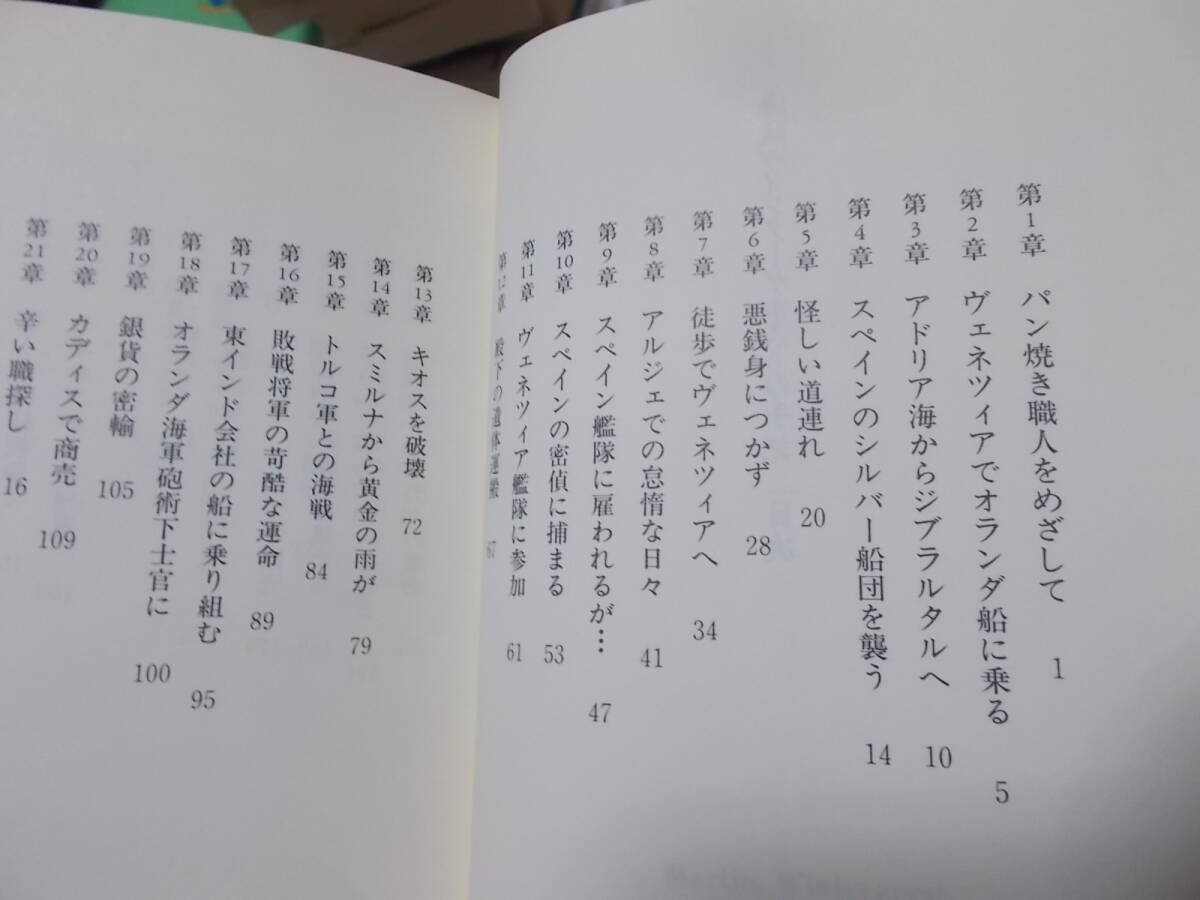 第1章 パン焼き職人をめざして 1
第2章 ヴェネツィアでオランダ船に乗る 5
第3章 アドリア海からジブラルタルへ 10
第4章 スペインのシルバー船団を襲う 14
第5章 怪しい道連れ 20
第6章 悪銭身につかず 28
第7章 徒歩でヴェネツィアへ 34
第8章 アルジェでの怠惰な日々 41
第9章 スペイン艦隊に雇われるが… 47
第10章 スペインの密偵に捕まる 53
第11章 ヴェネツィア艦隊に参加 61
第12章 殿下の遺体運搬 67
第13章 キオスを破壊 72
第14章 スミルナから黄金の雨が 79
第15章 トルコ軍との海戦 84
第16章 敗戦将軍の苛酷な運命 89
第17章 東インド会社の船に乗り組む 95
第18章 オランダ海軍砲術下士官に 100
第19章 銀貨の密輸 105
第20章 カディスで商売 109
第21章 辛い職探し 16